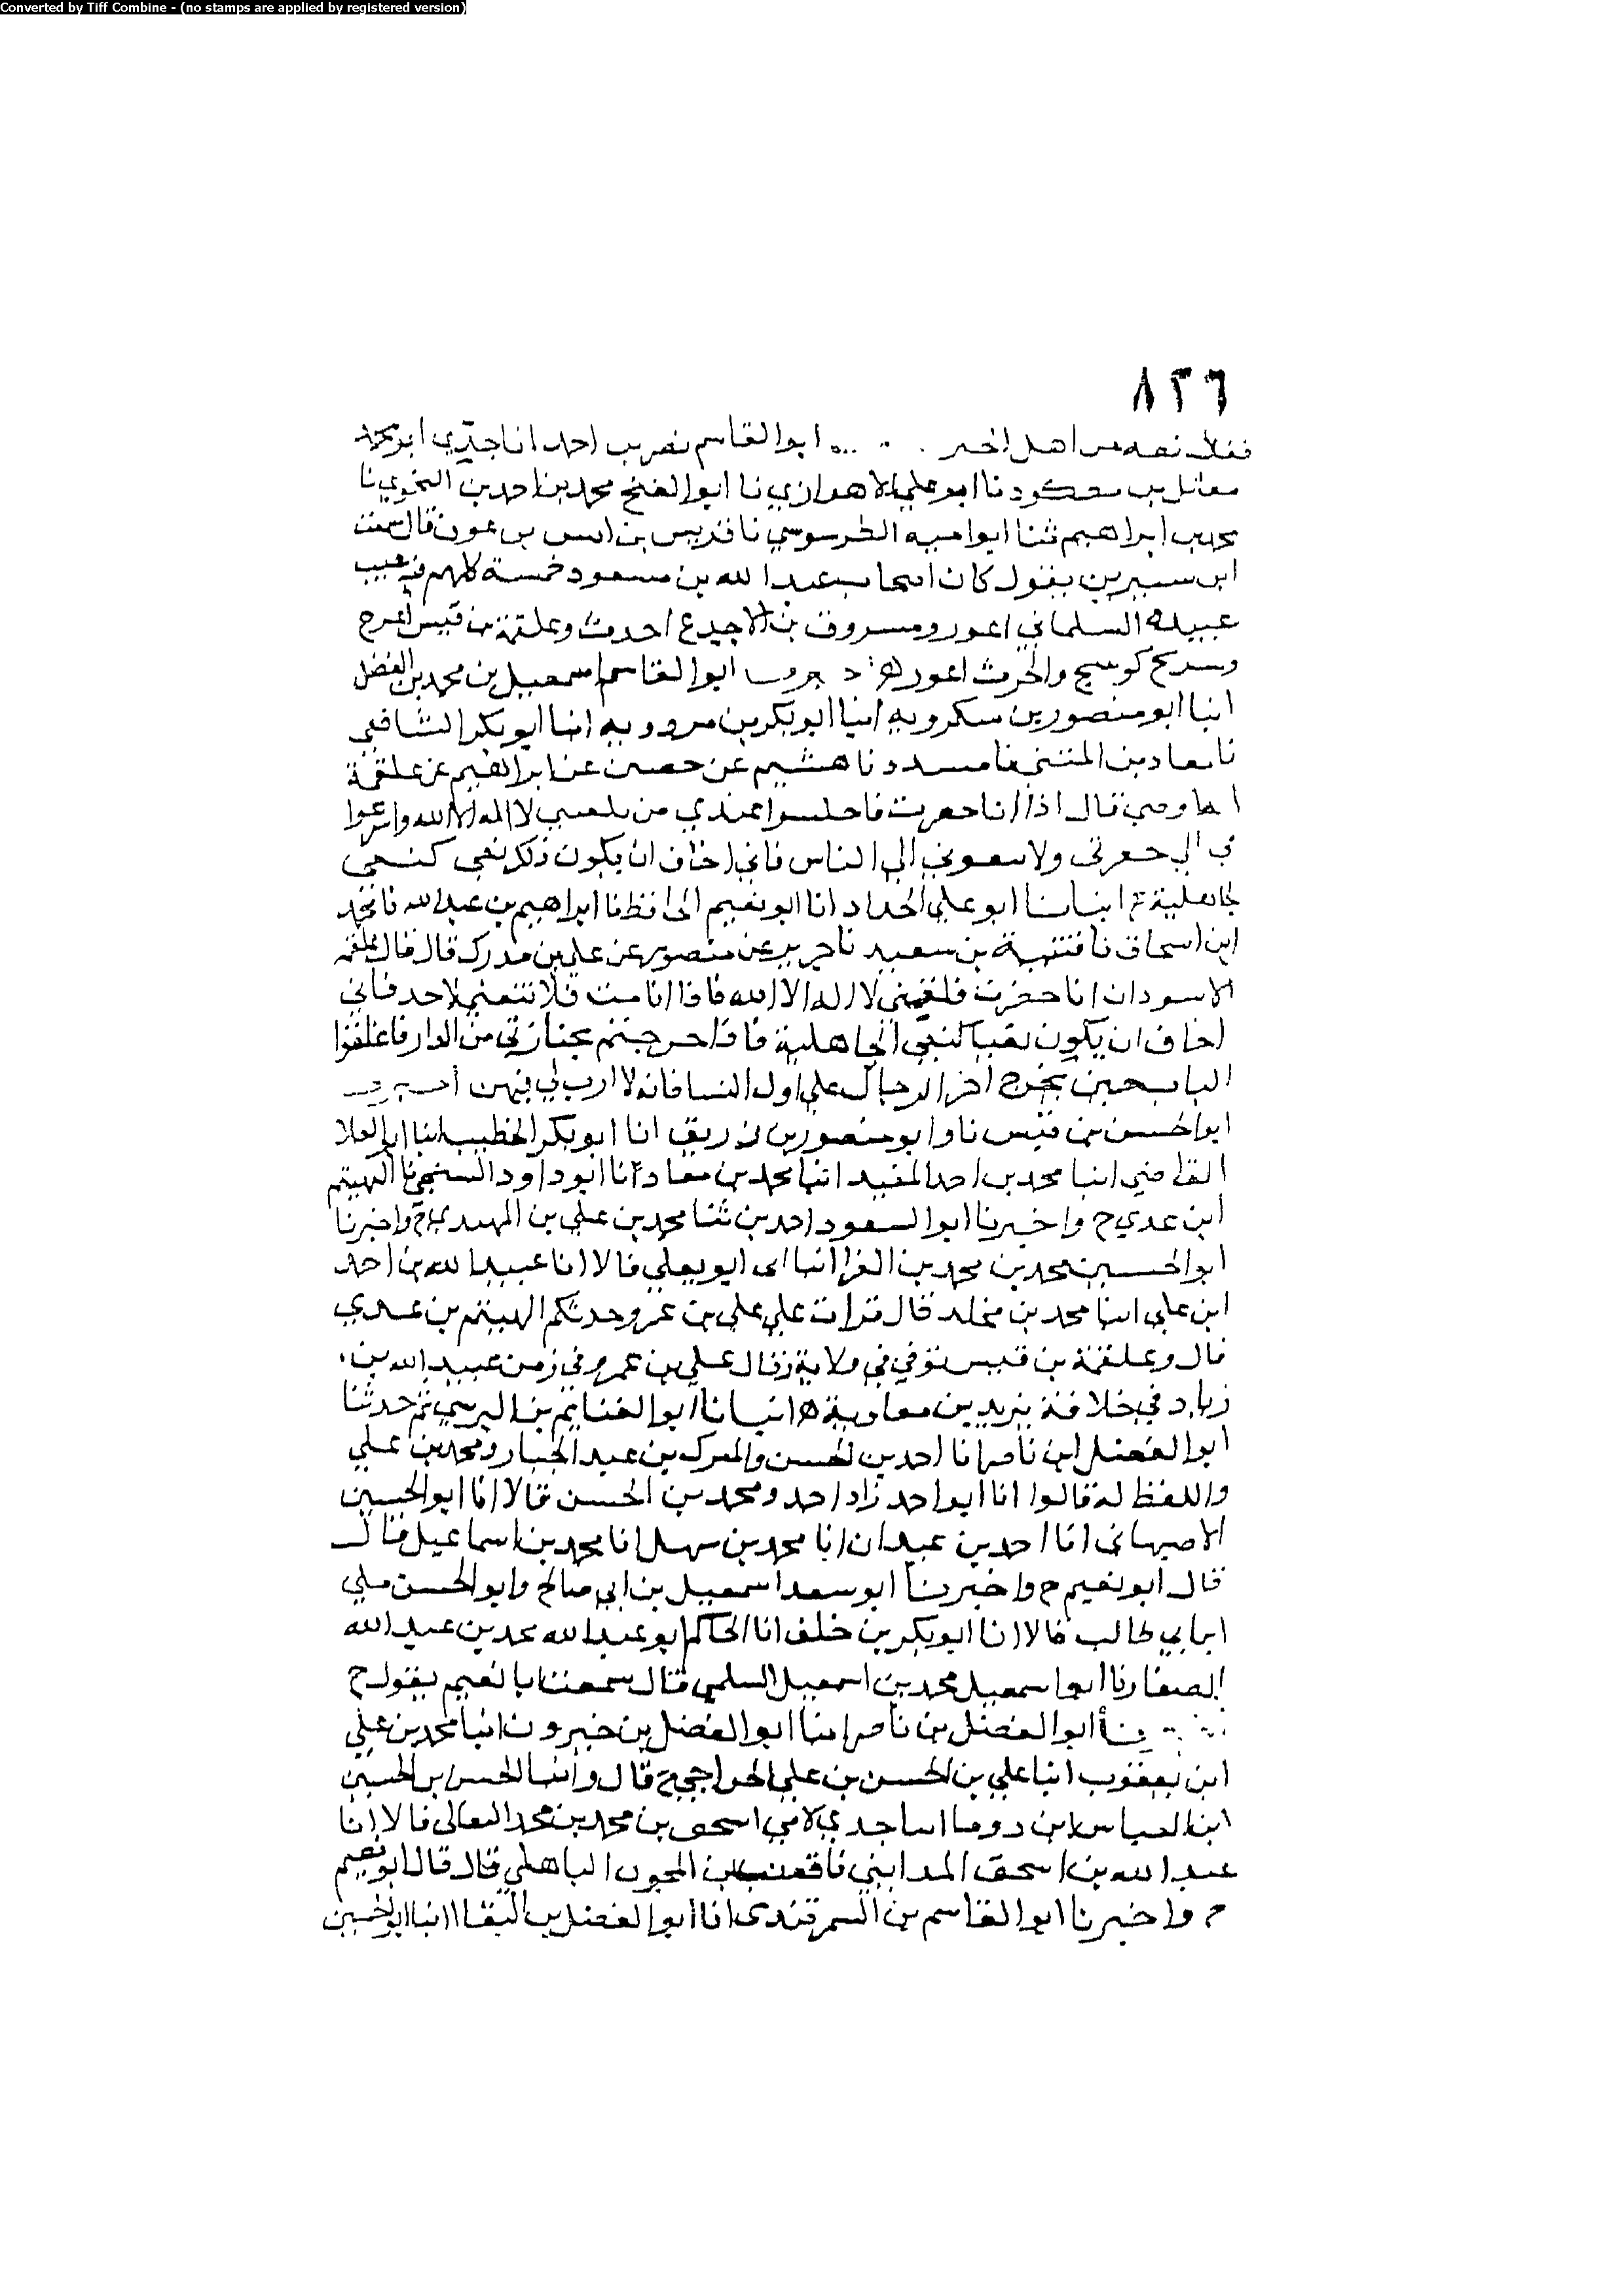 Converted by Tiff Combine - (no stamps are applied by registered version)
٨٣٦
اهل الخير ابوا القاسم نصر بن احمد انا جدي ابو محمد
مقاتل بن نا ابو علي الاهوازي نا ابوا الفتح محمد بن احمد بن النحوي نا
محمد بن ابراهيم ثنا ابوا اميه الطرسوسي نا قريس بن انس بن عون قال سمعت
ابن سيرين يقول كان اصحاب عبد الله بن مسعود خمسة كلهم فيه عيب
عبيدة السلماني اعور ومسروق بن الاجدع احدث وعلقمة بن قيس اعرج
وسريح كوسج والحرث اعور ابوا القاسم اسمعيل بن محمد بن الفضل
انبا ابو منصور بن سكرويه انبا ابو بكر بن مردويه انبا ابو بكر الشافعي
نا معاذ بن المثنى نا مسدد نا هشيم عن حصين عن ابراهيم عن علقمة
انه اوصى قال اذا انا حضرت فاجلسوا عندي من يلقني لا اله الا الله واسرعوا
بي الى حفرتي ولا تنعوني الى الناس فاني اخاف ان يكون ذلك نعي كنعي
الجاهلية انبانا ابو علي الحداد انا ابو نعيم الحافظ نا ابراهيم بن عبد الله نا محمد
ابن اسحاق نا قتيبة بن سعيد نا جرير عن منصور عن علي بن مدرك قال قال علقمه
الاسود ان انا حضرت فلقيني لا اله الا الله فاذا انا مت فلا تنعني لاحد فاني
اخاف ان يكون نعيا كنعي الجاهلية فاذا خرجتم بجنازتي من الدار فاغلقوا
الباب حين يخرج اخر الرجال على اول النسا فانه لا ارب لي فيهن
ابوا الحسن بن قيس نا وابو منصور بن زريق انا ابو بكر الخطيب انبا ابوا العلا
القاضي انبا محمد بن احمد المفيد انبا محمد بن معاذ نا ابو داود السنجي نا الهيثم
ابن عدي ح واخبرنا ابوا السعود احمد بن ثنا محمد بن علي بن المهدي ح واخبرنا
ابوا الحسين محمد بن محمد بن الفرا انبا ابي ابو يعلي قالا انا عبيد الله بن احمد
ابن علي انبا محمد بن مخلد قال قرات علي علي بن عمرو حدثكم الهيثم بن عدي
قال وعلقمة بن قيس توفي في ولاية قال علي بن عمرو في زمن عبيد الله بن
زياد في خلافة يزيد بن معاوية ه انبانا ابوا الغنايم بن النرسي ثم حدثنا
ابوا الفضل ابن ناصر انا احمد بن الحسن والمبرك بن عبد الجبار ومحمد بن علي
واللفظ له قالوا انا ابوا احمد زاد احمد ومحمد بن الحسن قالا انا ابوا الحسين
الاصبهاني انا احمد بن عبدان انا محمد بن سهل انا محمد بن اسماعيل قال
قال ابو نعيم ح واخبرنا ابو سعد اسمعيل بن ابي صالح وابوا الحسن ملي
ابن ابي طالب قالا انا ابو بكر بن خلف انا الحاكم ابو عبد الله محمد بن عبد الله
الصفار نا ابوا سمعيل محمد بن اسمعيل السلمي قال سمعت ابا نعيم يقول ح
ابوا الفضل بن ناصر انبا ابوا الفضل بن خيرون انبا محمد بن علي
ابن يعقوب انبا علي بن الحسن بن علي الجراحي ح قال وانبا الحسن بن الحسين
ابن العباس بن دوما انبا جدي لامي اسحق بن محمد بن محمد النعالي قالا انا
عبد الله بن اسحق المدايني نا قعنب بن المحرر الباهلي قال قال ابو نعيم
ح واخبرنا ابوا القاسم بن السمرقندي انا ابوا الفضل بن البقا انبا ابو الحسين